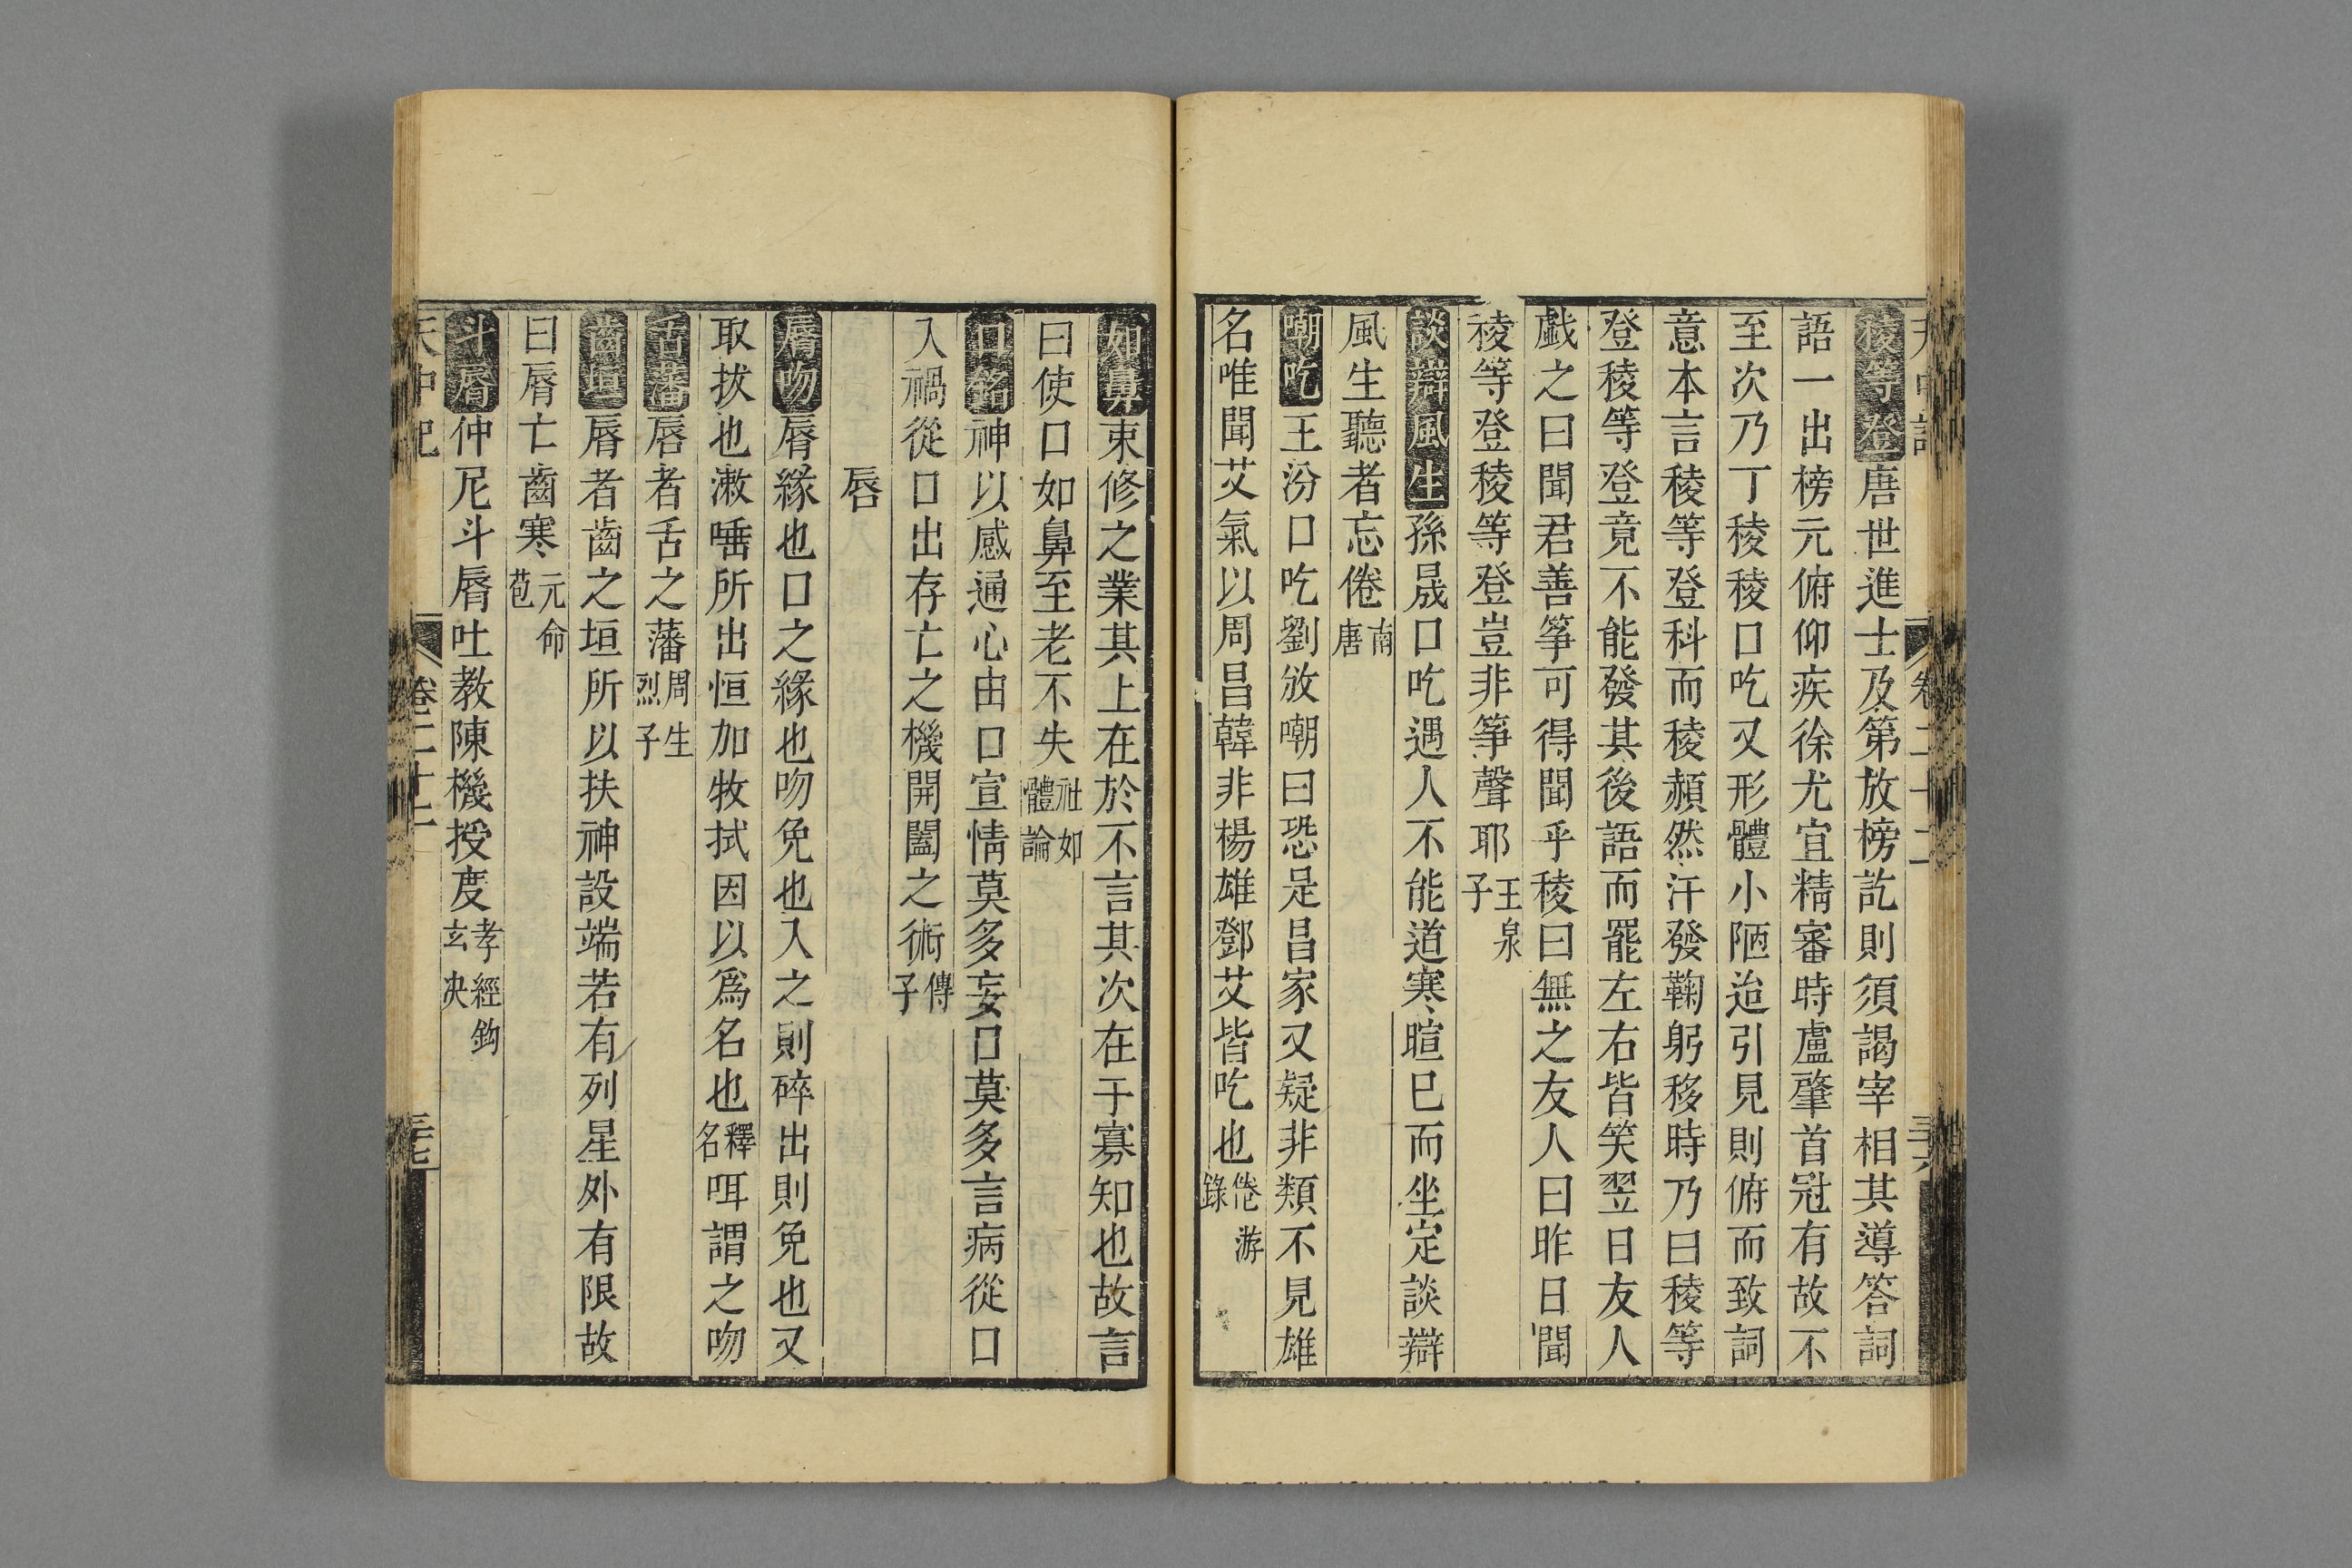 稜等登唐世進士及第放榜訖則須謁宰相其導答詞
語一出榜元俯仰疾徐尤宜精審時盧肇首冠有故不
至次乃丁稜稜口吃又形體小陋迨引見則俯而致詞
意本言稜等登科而稜頳然汗發鞠躬移時乃曰稜等
登稜等登竟不能發其後語而罷左右皆笑翌日友人
戲之曰聞君善筝可得聞乎稜曰無之友人曰昨日聞
稜等登稜等登豈非筝聲耶王泉子
談辯風生孫晟口吃遇人不能道寒暄巳而坐定談辯
風生聽者忘倦南唐
嘲吃王汾口吃劉攽嘲曰恐是昌家又疑非類不見雄
名唯聞艾氣以周昌韓非楊雄鄧艾皆吃也倦游錄
如鼻束修之業其上在於不言其次在于寡知也故言
曰使口如鼻至老不失社如體論
口銘神以感通心由口宣情莫多妄口莫多言病從口
入禍從口出存亡之機開闔之術傳子
唇
脣吻脣緣也口之緣也吻免也入之則碎出則免也又
取抜也漱唾所出恒加牧拭因以爲名也釋名咡謂之吻
舌藩唇者舌之藩周生烈子
齒垣脣者齒之垣所以扶神設端若有列星外有限故
曰脣亡齒寒元命苞
斗脣仲尼斗脣吐教陳機授度孝經鈎玄决
天中記 卷二十二 三十七